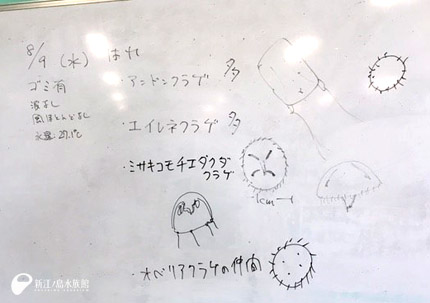 8/9 (水) はれ
ゴミ有
波なし
風ほとんどなし
水温 27.1℃
・アンドンクラゲ 多
・エイレネクラゲ 多
・ミサキコモチエダクダ
クラゲ
1cm
・オベリアクラゲの仲間
新江ノ島水族館